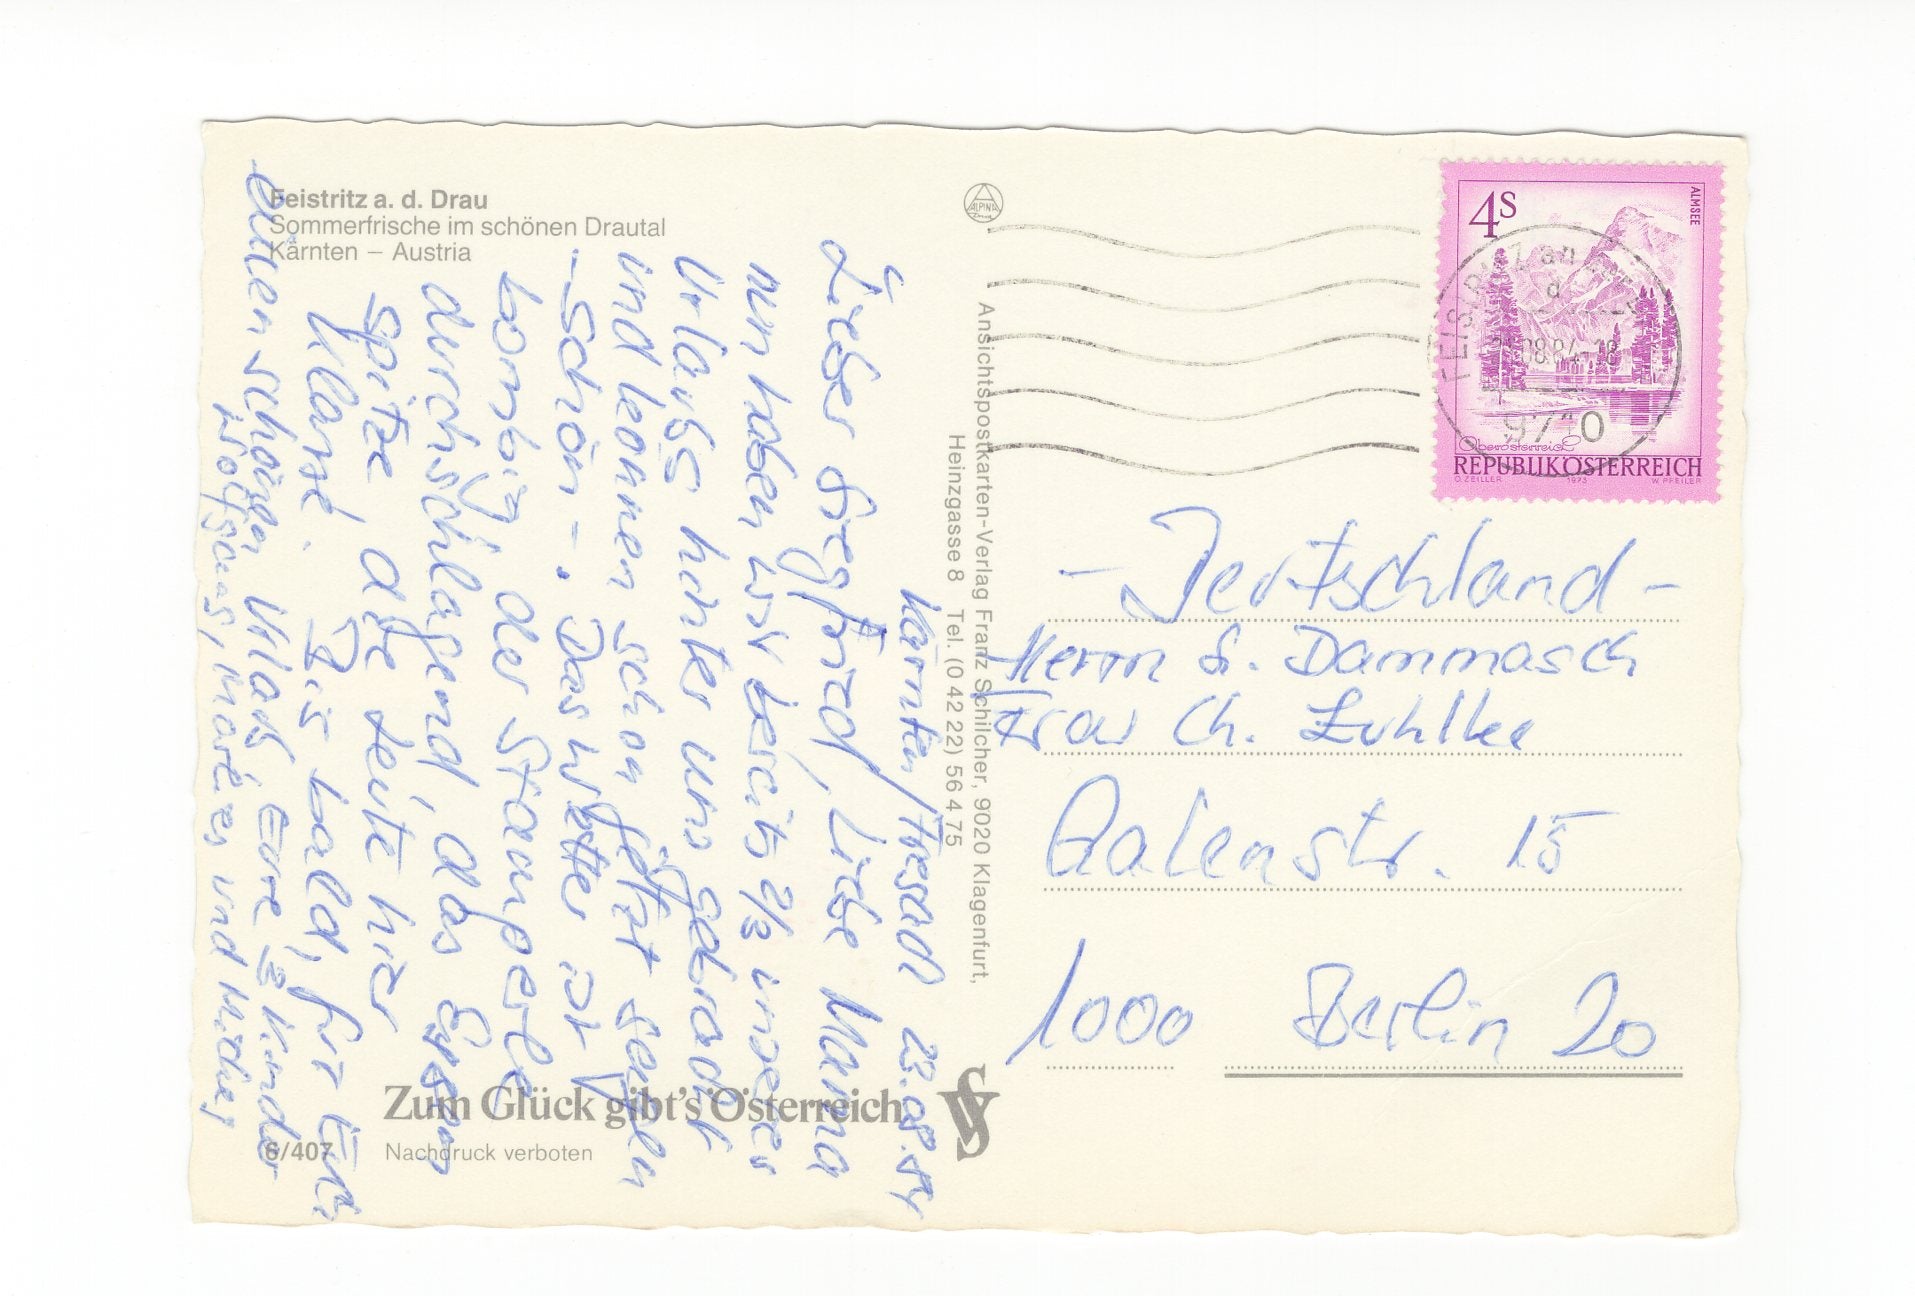 Feistritz a. d. Drau
Sommerfrische im schönen Drautal
Kärnten – Austria
ALPINA
Druck
Kärnten/Fresach 23.08.84
Lieber Siegfried, Liebe Mama
nun haben wir bereits 2/3 unseres
Urlaubs hinter uns gebracht
und können schon jetzt sagen
- schön -. Das Wetter ist
bombig, der Staup
durchschlagend, das Essen
spitze die Leute hier
klasse. Bis bald, für Euch
einen schönen Urlaub Eure 3 Kinder
Wolfgang, Marlies und Michael
Ansichtspostkarten-Verlag Franz Schilcher, 9020 Klagenfurt,
Heinzgasse 8 Tel. (0 42 22) 56 4 75
Zum Glück gibt's Österreich
6/407
Nachdruck verboten
4S
ALMSEE
Oberösterreich
REPUBLIK ÖSTERREICH
O. ZEILLER 1973 W. PFEILER
FEISTRITZ an
.08.84-18
9710
- Deutschland -
Herrn S. Dammasch
Frau Ch. Luhlke
Aalenstr. 15
1000 Berlin 20